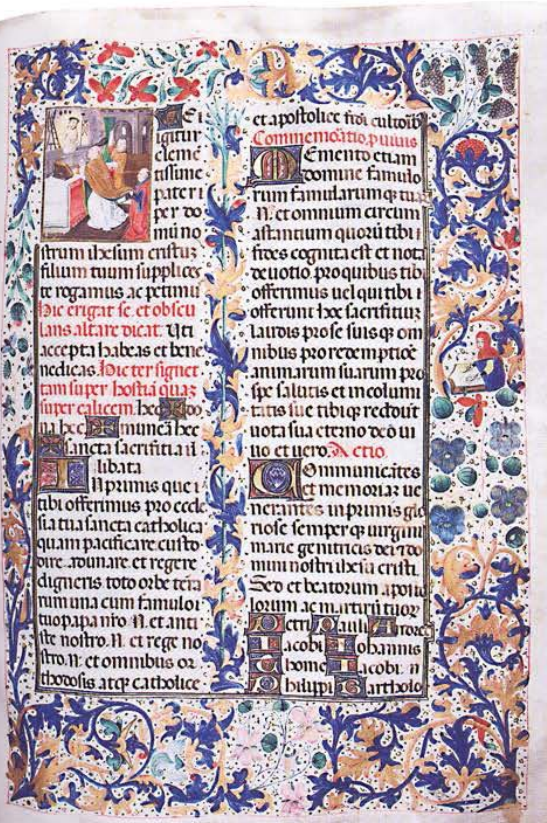 TE i
igitur
cleme
tissime
pater i
per do
mi no
strum ihesum cristuz
filium tuum supplices
te rogamus ac petimu
Hic erigat se et obscu
lans altare dicat. Uti
accepta habeas et bene
nedicas. Hic ter signet
tam super hostia quaz
super calicem. hec do
na hec munera hec
sancta sacrificia il
libata
In primus que i
tibi offerimus pro eccle
sia tua sancta catholica
quam pacificare custo
dire. adunare. et regere
digneris toto orbe tera
rum una cum famulo
tuo papa nro .N. et anti
ste nostro .N. et rege no
stro .N. et omnibus or
thodosis atqz catholice
et apostolice fidei cultorib
Commemoratio p viuis
Memento etiam
domine famulo
rum famularum qz tua
.N. et omnium circum
astantium quoru tibi i
fides cognita est et nota
deuotio. pro quibus tibi
offerimus uel qui tibi i
offerunt hoc sacrificiuz
laudis pro se suis qz om
nibus pro redemptioe
animarum suarum pro
spe salutis et incolumi
tatis sue tibi qz reddut
uota sua eterno deo ui
uo et uero. Actio
Communicates
et memoriaz ue
nerantes in primis glo
riose semper qz uirginis
marie genitricis dei z do
mini nostri ihesu cristi
Sed et beatorum aposto
lorum ac martiru tuor
Petri Pauli Andree
Iacobi Iohannis
Thome Iacobi
Philippi Bartholo